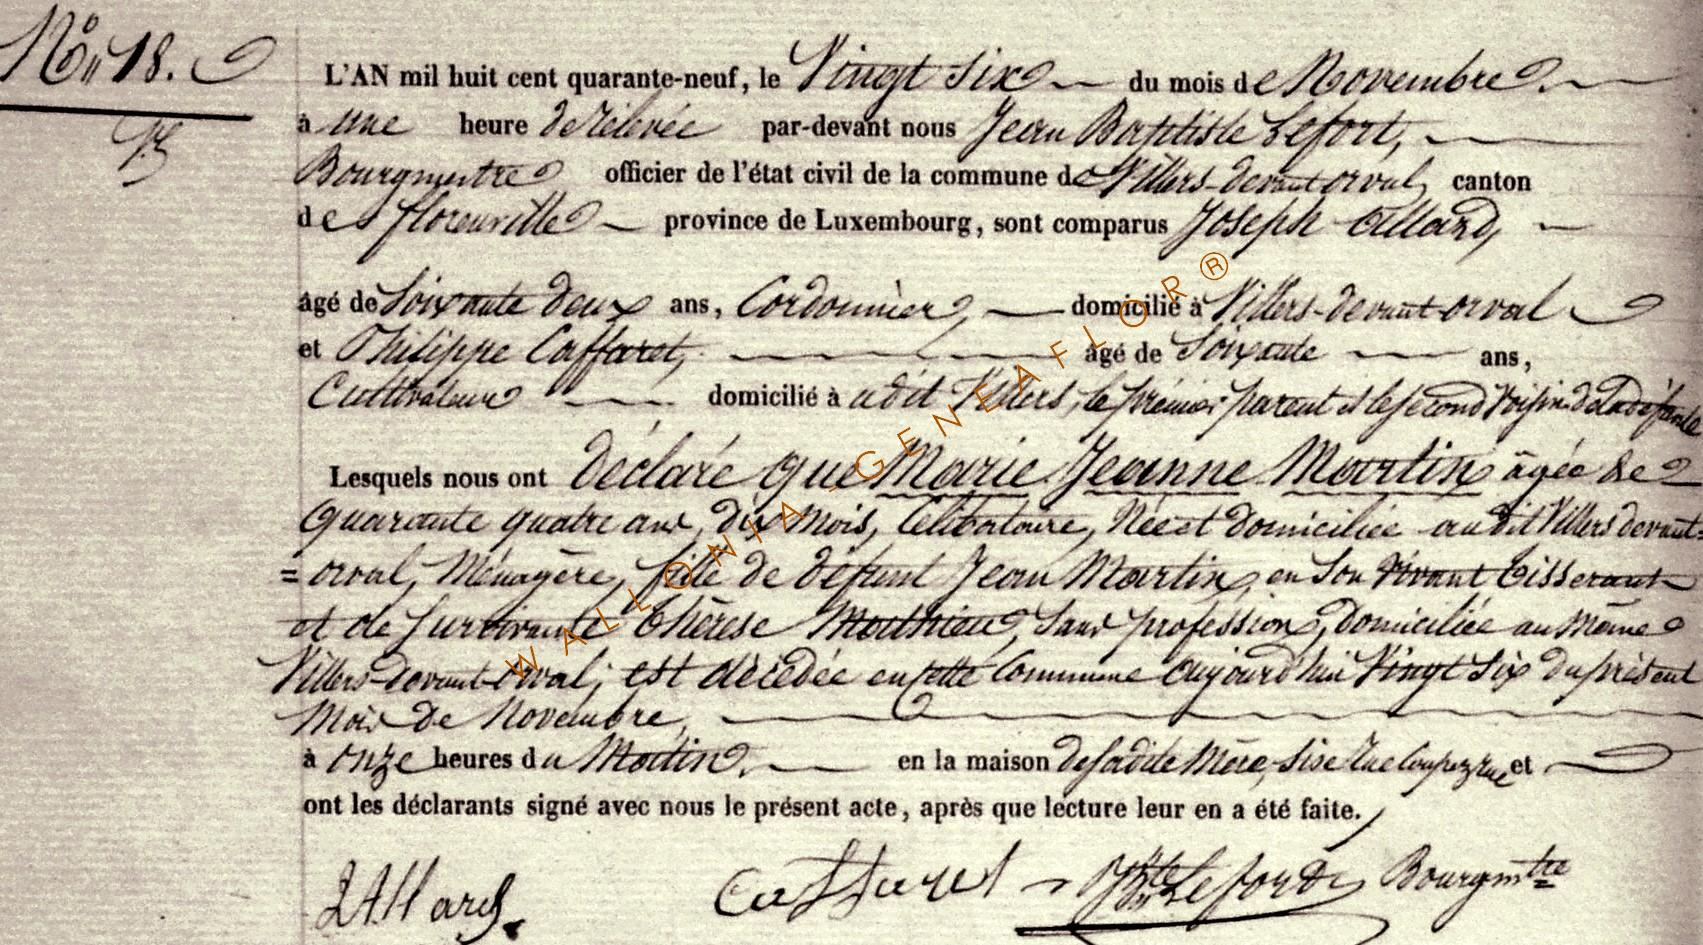 N° 18.
L'AN mil huit cent quarante-neuf, le Vingt Six du mois de Novembre.
à une heure de rélévée par-devant nous Jean Baptiste Lefort,
Bourgmestre officier de l'état civil de la commune de Villers-devant-orval, canton
de florenville province de Luxembourg, sont comparus Joseph Allard,
âgé de Soixante deux ans, Cordonnier, domicilié à Villers-devant-orval
et Philippe Caffaret, âgé de Soixante ans,
Cultivateur domicilié à udit Villers, le prémier parent et le second Voisin de la défunte
Lesquels nous ont déclaré que Marie Jeanne Martin âgée de
Quarante quatre ans, dix mois, Célibataire, Née et domiciliée au dit Villers devant=
=orval, Ménagère, fille de défunt Jean Martin, en Son vivant tisserant
et de Survivante thérèse Mathieu, Sans profession, domiciliée au même
Villers-devant-orval; est décédée en cette Commune aujourd'hui Vingt Six du présent
Mois de Novembre,
à onze heures du Matin. en la maison de sadite Mère, sise rue et
ont les déclarants signé avec nous le présent acte, après que lecture leur en a été faite.
J Allard. Caffaret JBte Lefort Bourgmtre
WALLONIA-GENEAFLOR®